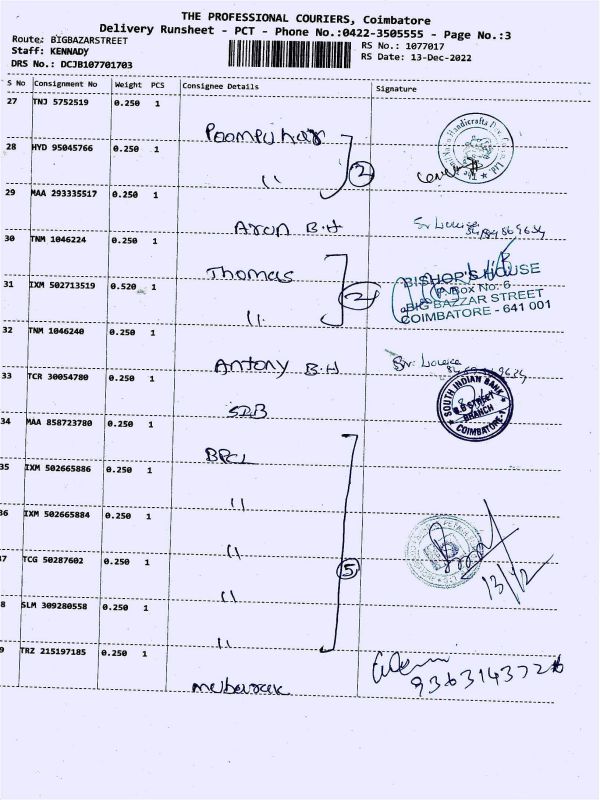 THE PROFESSIONAL COURIERS, Coimbatore
Delivery Runsheet - PCT - Phone No.:0422-3505555 - Page No.:3
Route: BIGBAZARSTREET
Staff: KENNADY
DRS No.: DCJB107701703
RS No.: 1077017
RS Date: 13-Dec-2022
S No Consignment No Weight PCS Consignee Details Signature
27 TNJ 5752519 0.250 1
Poompuhar
28 HYD 95045766 0.250 1
" 2
29 MAA 293335517 0.250 1
Arun B.H
30 TNM 1046224 0.250 1
Thomas
31 IXM 502713519 0.520 1
" 2
BISHOP'S HOUSE
P. Box No: 6
BIG BAZZAR STREET
COIMBATORE - 641 001
32 TNM 1046240 0.250 1
Antony B.H
33 TCR 30054780 0.250 1
SIB
SOUTH INDIAN BANK
B.B STREET
BRANCH
COIMBATORE-1
34 MAA 858723780 0.250 1
BPCL
35 IXM 502665886 0.250 1
"
36 IXM 502665884 0.250 1
"
37 TCG 50287602 0.250 1
" 5
13/12
8 SLM 309280558 0.250 1
"
9 TRZ 215197185 0.250 1
Mubarak